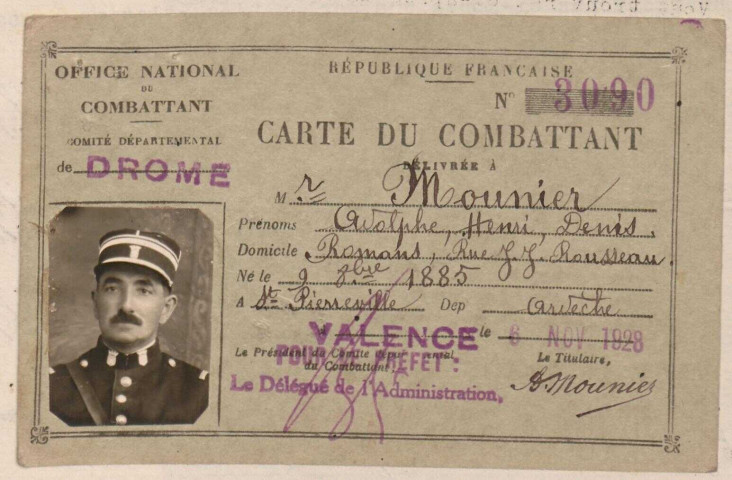 OFFICE NATIONAL
DU
COMBATTANT
COMITÉ DÉPARTEMENTAL
de DROME
RÉPUBLIQUE FRANÇAISE
N° 3090
CARTE DU COMBATTANT
DÉLIVRÉE À
M r Mounier
Prénoms Adolphe, Henri, Denis.
Domicile Romans, Rue J. J. Rousseau
Né le 9 8bre 1885
A St Pierreville Dep Ardèche
VALENCE le 6 NOV 1928
Le Président du Comité départemental
du Combattant
POUR LE PREFET :
Le Délégué de l'Administration,
Le Titulaire,
A Mounier